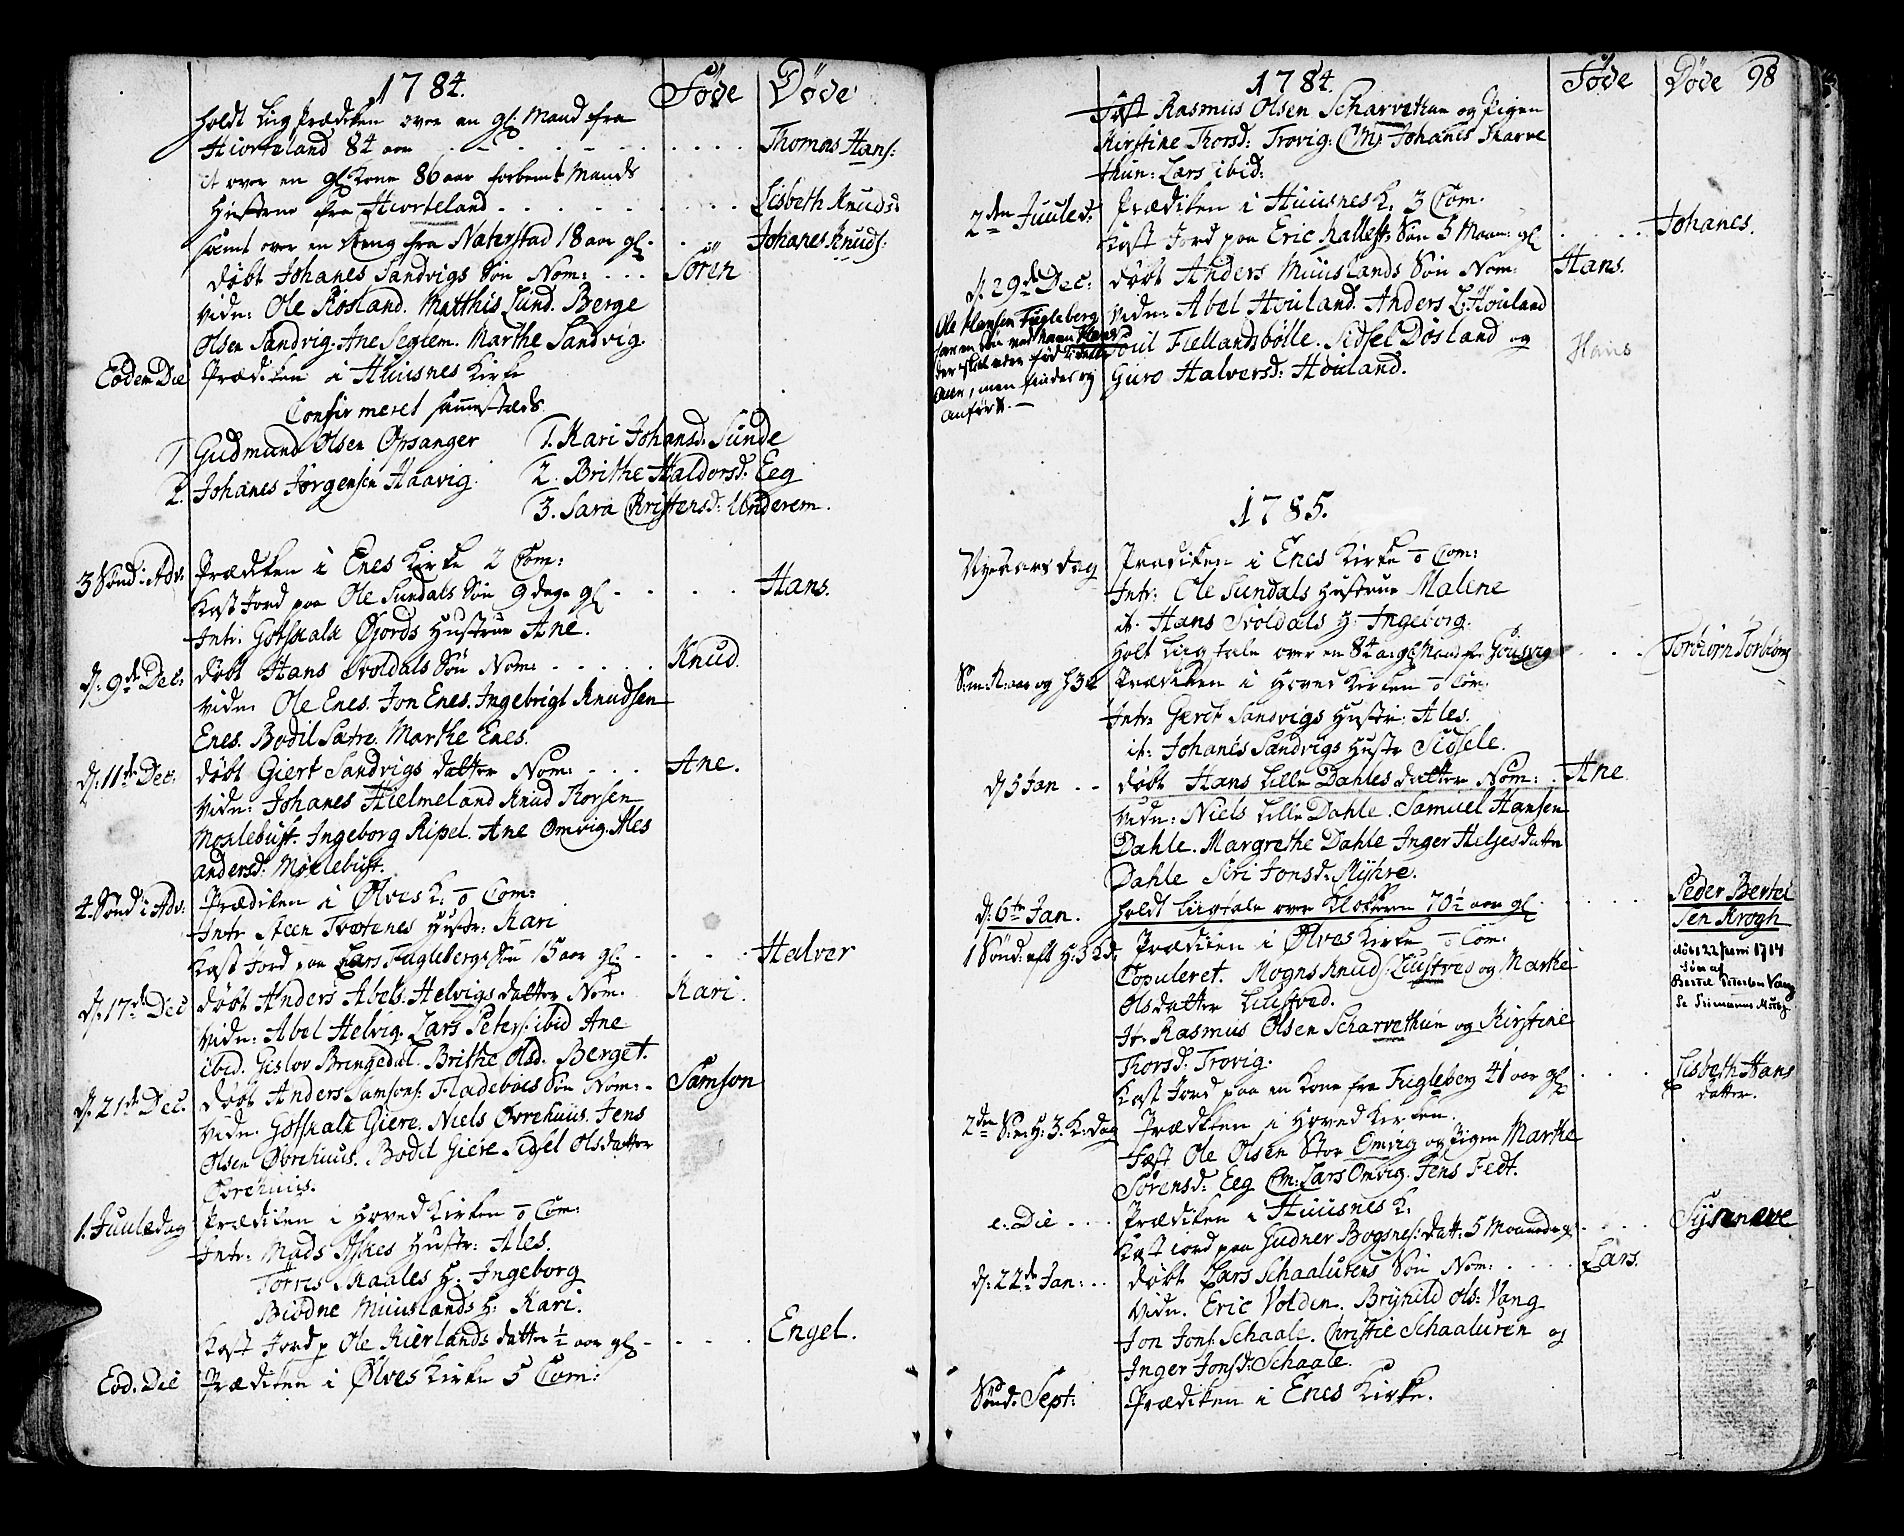 1784. Føde Døde
holdt Liigprædiken over en gl: Mand fra
Hiorteland 84 aar Thomas Hans:
it over en gl: Kone 86 aar forbemt Mands
Hustrue fra Hiorteland Lisbeth Knuds:
samt over en Dreng fra Naterstad 18 aar gl. Johanes Knuds:
døbt Johanes Sandvigs Søn Nom: Søren
vidn: Ole Rosland. Matthis Lund. Berge
Olsen Sandvig. Ane Seglem. Marthe Sandvig.
Eodem Die Prædiken i Huusnes Kirke
Confirmeret sammesteds.
1 Gudmund Olsen Opsanger 1. Kari Johansd: Sunde
2. Johanes Jørgensen Haavig. 2. Brithe Haldorsd: Eeg
3. Sara Christensd: Underem.
3 Sønd: i Adv: Prædiken i Enes Kirke 2 Com:
Kast Jord paa Ole Sundals Søn 9 dage gl Hans.
Intr: Gotskalk Øfjords Hustrue Ane.
d: 9de Dec: døbt Hans Tvoldals Søn Nom: Knud.
vidn: Ole Enes. Jon Enes. Ingebrigt Knudsen
Enes. Bodil Sætre. Marthe Enes.
d: 11te Dec: døbt Giert Sandvigs datter Nom: Ane.
vidn: Johanes Hielmeland Knud Thorsen
Moxlebust. Ingeborg Ripel. Ane Omvig. Ales
andersd: Møxlebust.
4. Sønd i Adv. Prædiken i Ølves K: 0 Com:
Intr Steen Tvætenes Hustr: Kari
Kast Jord paa Lars Fuglebergs Søn 15 aar gl. Halver
d: 17de Dec døbt Anders Abels: Helvigs datter Nom. Kari.
vidn: Abel Helvig. Lars Peters: ibid Ane
ibid. Gislov Bringedal. Brithe Olsd. Berget.
d: 21de Dec. døbt Anders Samsons: Fladeboes Søn Nom: Samson
vidn. Gotskalk Giere. Niels Ovrehuus. Jens
Olsen Øvrehuus. Bodil Giere Sigel Olsdatter
Ovrehuus.
1. Juuledag Prædiken i Hoved Kirken 0 Com:
Intr: Mads Askes Hustr: Ales.
Torres Skaales H: Ingeborg
Biødne Muuslands H: Kari.
Kast Jord p Ole Kierlands datter ½ aar gl Engel.
Eod. Die Prædiken i Ølves Kirke 5 Com:
1784. Føde Døde 98
Fæst Rasmus Olsen Scharvethun og Pigen
Kirstine Thorsd: Trovig. CM: Johanes Skarve
thun: Lars ibid:
2den Juuled: Prædiken i Huusnes K. 3 Com.
Kast Jord paa Eric Kallest: Søn 5 Maan: gl Johanes.
d: 29de Dec: døbt Anders Muuslands Søn Nom: Hans.
vidn: Abel Houland. Anders L: Houland
Poul Fiellandsbølle. Sidsel Dosland og Hans
Guro Halversd: Houland.
Ole Hansen Fugleberg
har en Søn ved Navn Hans
der skal være fød i dette
Aar, men findes ej
anført.
1785.
Nyeaarsdag Prædiken i Enes Kirke 0 Com:
Intr: Ole Sundals Hustrue Malene
it. Hans Tvoldals H: Ingeborg.
Holt Liigtale over en 82 a: gl Mand fr Gousvig Torbiørn Torbiørns
S: m: N: aar og H 3 K Prædiken i Hoved Kirken 0 Com:
Intr Gierdt Sandvigs Hustr: Ales.
it: Johanes Sandvigs Hustr Sidsele.
d: 5 Jan døbt Hans Lille Dahles datter Nom: Ane.
vidn: Niels Lille Dahle. Samuel Hansen
Dahle. Margrethe Dahle Inger Helgesdatter
Dahle Siri Jonsd: Myhre.
d: 6te Jan. holdt Liigtale over Klokkeren 70½ aar gl. Peder Bertel
sen Krogh
døbt 22 Juni 1714
søn af
Bertel Pedersen Vang
1 Sønd: eft H: 3 K d. Prædiken i Ølves Kirke 0 Com:
Copuleret. Mogns Knuds: Liustves og Marthe
Olsdatter Liustved.
It: Rasmus Olsen Scharvethun og Kirstine
Thorsd: Trovig.
Kast Jord paa en Kone fra Fugleberg 41 aar gl Lisbeth Hans
datter.
2den S: e: H: 3. K: dag Prædiken i Hoved Kirken.
Fæst Ole Olsen Stor Omvig og Pigen Marthe
Sørensd: Eeg CM: Lars Omvig. Jens Tedt.
e. Die Prædiken i Huusnes K.
Kast iord paa Gudner Bogsnes: datt: 5 Maaneder Synneve
d: 22de Jan: døbt Lars Schaalurens Søn Nom: Lars.
vidn. Eric Volden. Brynild Ols: Vang
Jon Jons: Schaale. Christie Schaaluren og
Inger Jonsd: Schaale.
Sønd: Sept: Prædiken i Enes Kirke.